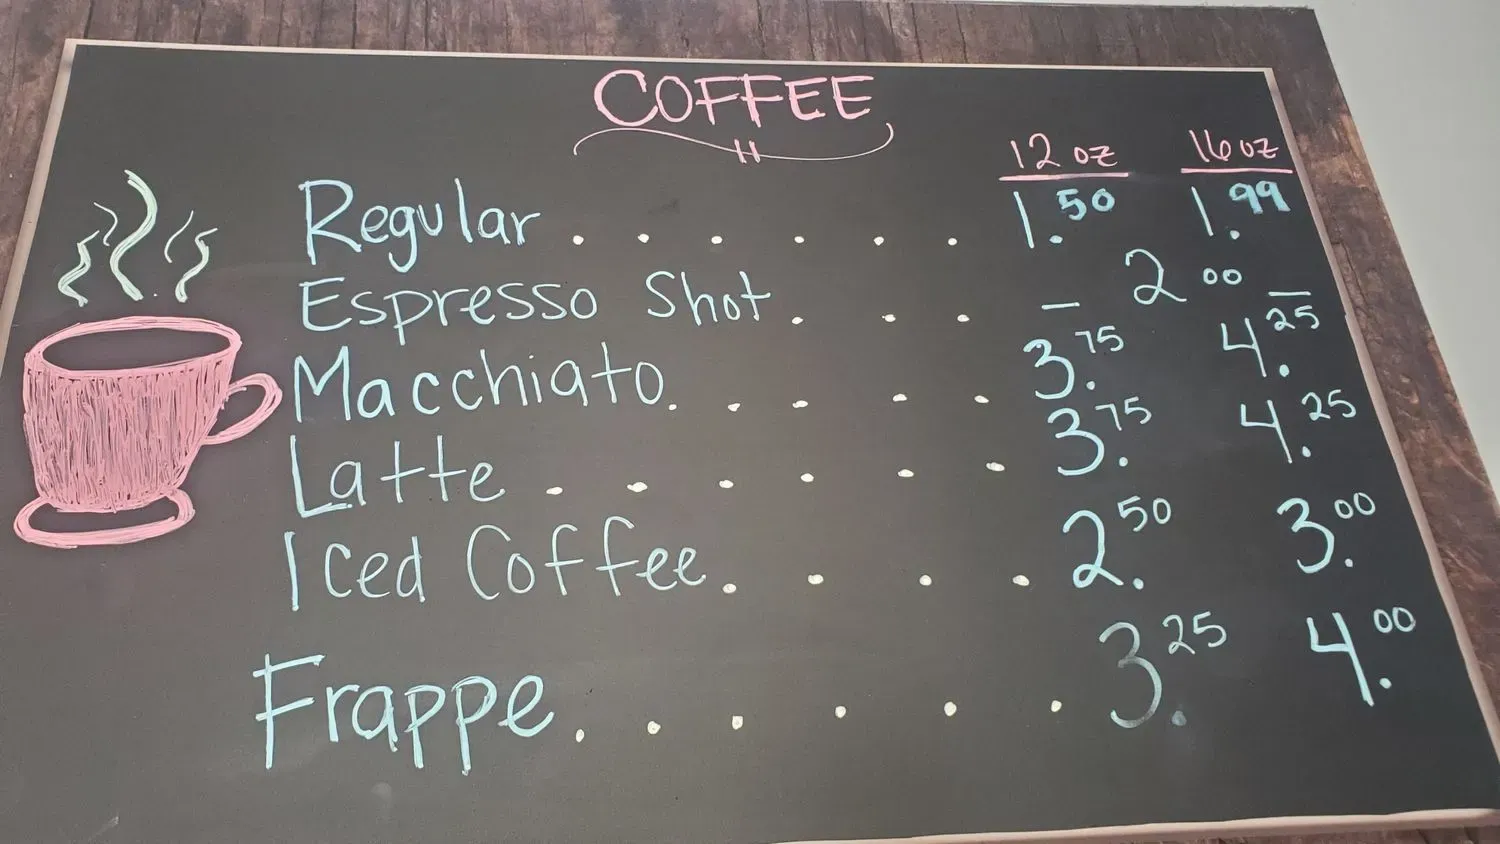 COFFEE
12 oz 16 oz
Regular . . . . . . 1.50 1.99
Espresso Shot . . . — 2 00 —
Macchiato . . . . . 3.75 4.25
Latte . . . . . . 3.75 4.25
Iced Coffee . . . . 2.50 3.00
Frappe . . . . . . 3.25 4.00